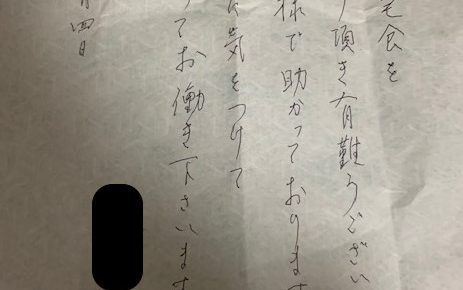 宅食を
頂き有難うござい
様で助かっております
に気をつけて
てお働き下さいます
月四日